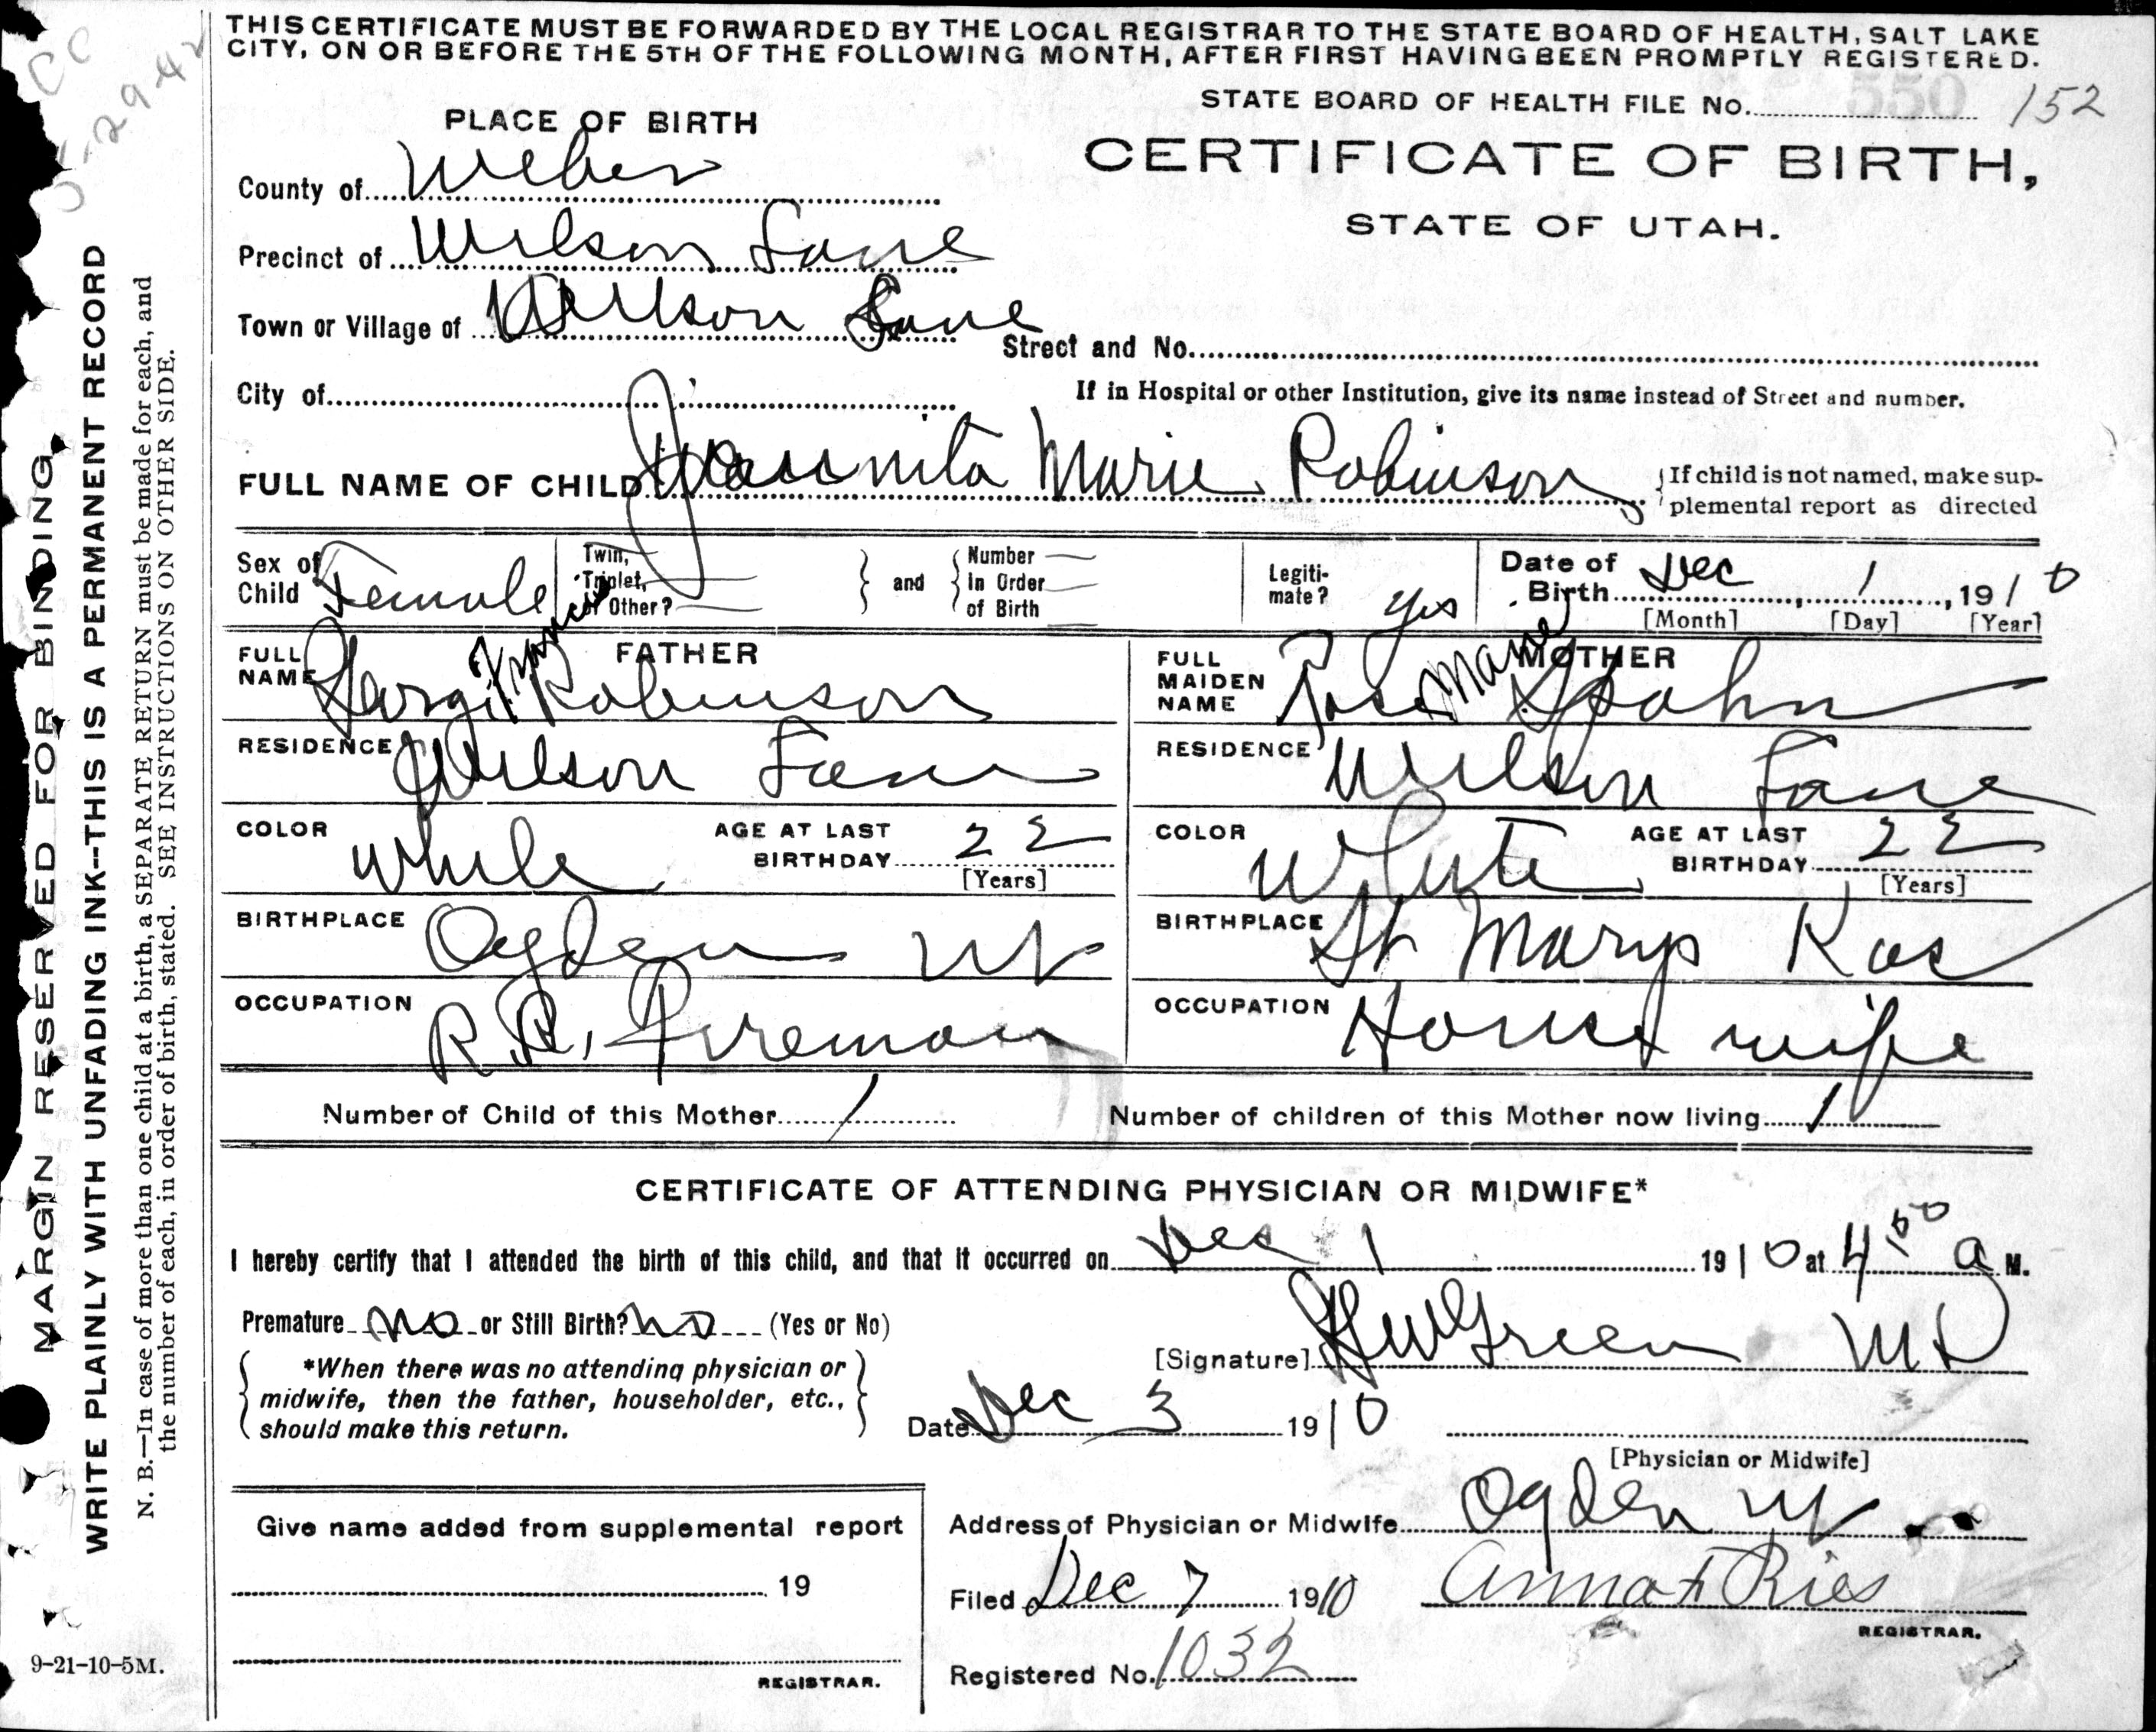 THIS CERTIFICATE MUST BE FORWARDED BY THE LOCAL REGISTRAR TO THE STATE BOARD OF HEALTH, SALT LAKE
CITY, ON OR BEFORE THE 5TH OF THE FOLLOWING MONTH, AFTER FIRST HAVING BEEN PROMPTLY REGISTERED.
STATE BOARD OF HEALTH FILE No. 550 152
PLACE OF BIRTH
CERTIFICATE OF BIRTH,
STATE OF UTAH.
County of Weber
Precinct of Wilson Lane
Town or Village of Wilson Lane
Street and No.
City of
If in Hospital or other Institution, give its name instead of Street and number.
FULL NAME OF CHILD Juanita Marie Robinson
If child is not named, make sup-
plemental report as directed
Sex of Child Female
Twin, Triplet, or Other?
and
Number In Order of Birth
Legiti-
mate? Yes
Date of Birth Dec 1, 1910
[Month] [Day] [Year]
FATHER
FULL NAME Francis Robinson
RESIDENCE Wilson Lane
COLOR White
AGE AT LAST BIRTHDAY 22
[Years]
BIRTHPLACE Ogden Ut
OCCUPATION R.R. Fireman
MOTHER
FULL MAIDEN NAME Rose Marie Spohn
RESIDENCE Wilson Lane
COLOR White
AGE AT LAST BIRTHDAY 22
[Years]
BIRTHPLACE St Marys Kas
OCCUPATION House wife
Number of Child of this Mother 1
Number of children of this Mother now living 1
CERTIFICATE OF ATTENDING PHYSICIAN OR MIDWIFE*
I hereby certify that I attended the birth of this child, and that it occurred on Dec 1 1910 at 4 a M.
Premature no or Still Birth? no (Yes or No)
*When there was no attending physician or
midwife, then the father, householder, etc.,
should make this return.
[Signature] Green MD
Date Dec 3 1910
[Physician or Midwife]
Give name added from supplemental report
19
REGISTRAR.
Address of Physician or Midwife Ogden Ut
Filed Dec 7 1910 Anna F Ries
REGISTRAR.
Registered No. 1032
MARGIN RESERVED FOR BINDING
WRITE PLAINLY WITH UNFADING INK--THIS IS A PERMANENT RECORD
N. B.—In case of more than one child at a birth, a SEPARATE RETURN must be made for each, and
the number of each, in order of birth, stated. SEE INSTRUCTIONS ON OTHER SIDE.
9-21-10-5M.